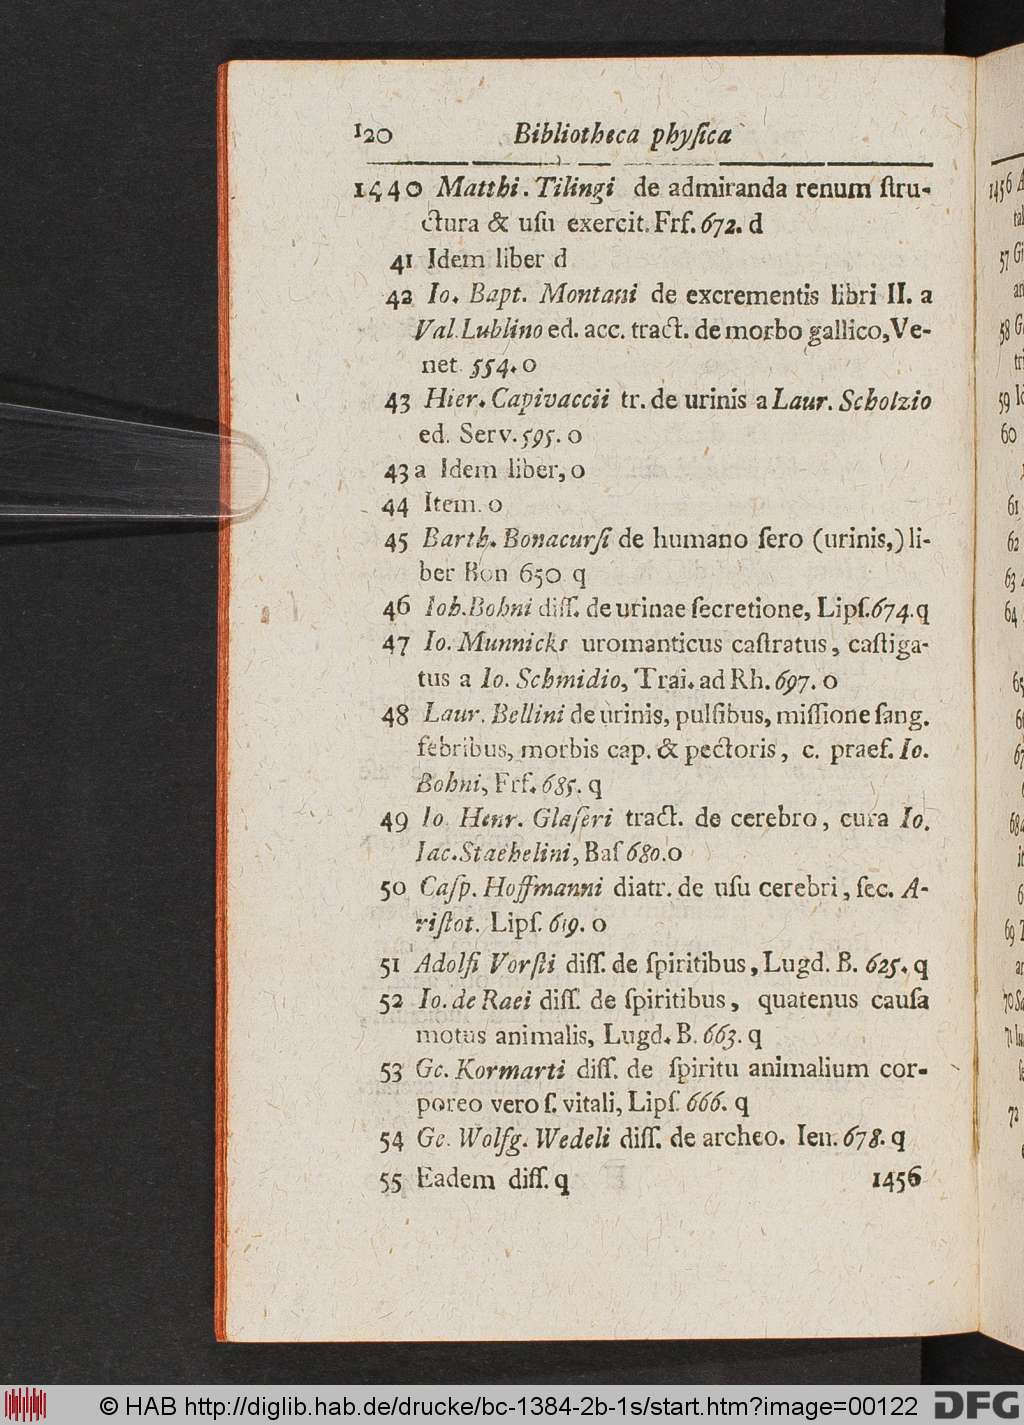 120 Bibliotheca phyſica
1440 Matthi. Tilingi de admiranda renum ſtru-
ctura & uſu exercit. Frf. 672. d
41 Idem liber d
42 Io. Bapt. Montani de excrementis libri II. a
Val. Lublino ed. acc. tract. de morbo gallico, Ve-
net 554. o
43 Hier. Capivaccii tr. de urinis a Laur. Scholzio
ed. Serv. 595. o
43 a Idem liber, o
44 Item. o
45 Barth. Bonacurſi de humano ſero (urinis,) li-
ber Bon 650 q
46 Ioh. Bohni diſſ. de urinae ſecretione, Lipſ. 674. q
47 Io. Munnicks uromanticus caſtratus, caſtiga-
tus a Io. Schmidio, Trai. ad Rh. 697. o
48 Laur. Bellini de urinis, pulſibus, miſſione ſang.
febribus, morbis cap. & pectoris, c. praef. Io.
Bohni, Frf. 685. q
49 Io. Henr. Glaſeri tract. de cerebro, cura Io.
Iac. Staehelini, Baſ 680. o
50 Caſp. Hoffmanni diatr. de uſu cerebri, ſec. A-
riſtot. Lipſ. 619. o
51 Adolfi Vorſti diſſ. de ſpiritibus, Lugd. B. 625. q
52 Io. de Raei diſſ. de ſpiritibus, quatenus cauſa
motus animalis, Lugd. B. 663. q
53 Ge. Kormarti diſſ. de ſpiritu animalium cor-
poreo vero ſ. vitali, Lipſ. 666. q
54 Ge. Wolfg. Wedeli diſſ. de archeo. Ien. 678. q
55 Eadem diſſ. q 1456
1456 A
57 Gi
58 G
59 Io
60
61
62
63
64
© HAB http://diglib.hab.de/drucke/bc-1384-2b-1s/start.htm?image=00122
DFG